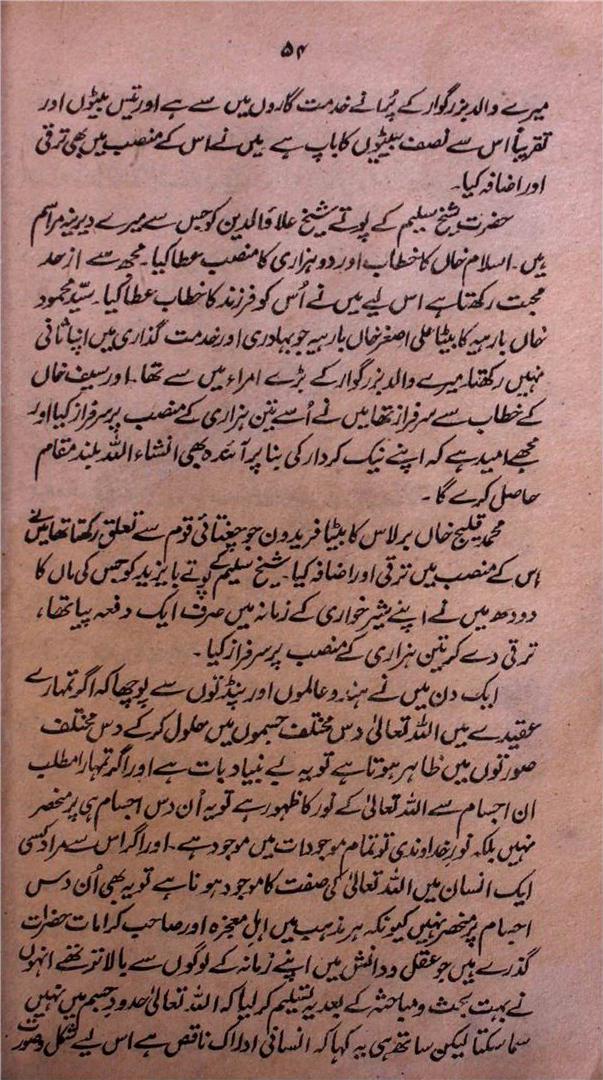 ۵۴
میرے والد بزرگوار کے پُرانے خدمت گاروں میں سے ہے اور تیس بیٹیوں اور
تقریباً اس سے نصف بیٹیوں کا باپ ہے میں نے اس کے منصب میں بھی ترقی
اور اضافہ کیا۔
حضرت شیخ سلیم کے پوتے شیخ علاؤالدین کو جس سے میرے دیرینہ مراسم
ہیں۔ اسلام خاں کا خطاب اور دو ہزاری کا منصب عطا کیا۔ مجھ سے ازحد
محبت رکھتا ہے اس لیے میں نے اُس کو فرزند کا خطاب عطا کیا۔ سیّد محمود
خاں بارہیہ کا بیٹا علی اصغر خاں بارہیہ جو بہادری اور خدمت گذاری میں اپنا ثانی
نہیں رکھتا۔ میرے والد بزرگوار کے بڑے امراء میں سے تھا۔ اور سیف خاں
کے خطاب سے سرفراز تھا میں نے اُسے تین ہزاری کے منصب پر سرفراز کیا اور
مجھے امید ہے کہ اپنے نیک کردار کی بنا پر آئندہ بھی انشاء اللہ بلند مقام
حاصل کرے گا۔
محمد قلیچ خاں برلاس کا بیٹا فریدون جو چغتائی قوم سے تعلق رکھتا تھا میں نے
اس کے منصب میں ترقی اور اضافہ کیا۔ شیخ سلیم کے پوتے بایزید کو جس کی ماں کا
دودھ میں نے اپنے شیر خواری کے زمانہ میں صرف ایک دفعہ پیا تھا،
ترقی دے کر تین ہزاری کے منصب پر سرفراز کیا۔
ایک دن میں نے ہندو عالموں اور پنڈتوں سے پوچھا کہ اگر تمہارے
عقیدے میں اللہ تعالیٰ دس مختلف جسموں میں حلول کر کے دس مختلف
صورتوں میں ظاہر ہوتا ہے تو یہ بے بنیاد بات ہے اور اگر تمہارا مطلب
ان اجسام سے اللہ تعالیٰ کے نور کا ظہور ہے تو یہ اُن دس اجسام ہی پر منحصر
نہیں بلکہ نورِ خداوندی تو تمام موجودات میں موجود ہے۔ اور اگر اس سے مراد کسی
ایک انسان میں اللہ تعالیٰ کی صفت کا موجود ہونا ہے تو یہ بھی اُن دس
اجسام پر منحصر نہیں کیونکہ ہر مذہب میں اہلِ معجزہ اور صاحب کرامات حضرات
گذرے ہیں جو عقل و دانش میں اپنے زمانہ کے لوگوں سے بالاتر تھے انہوں
نے بہت بحث و مباحثہ کے بعد یہ تسلیم کر لیا کہ اللہ تعالیٰ حدودِ جسم میں نہیں
سما سکتا لیکن ساتھ ہی یہ کہا کہ انسانی ادراک ناقص ہے اس لیے شکل و صورت